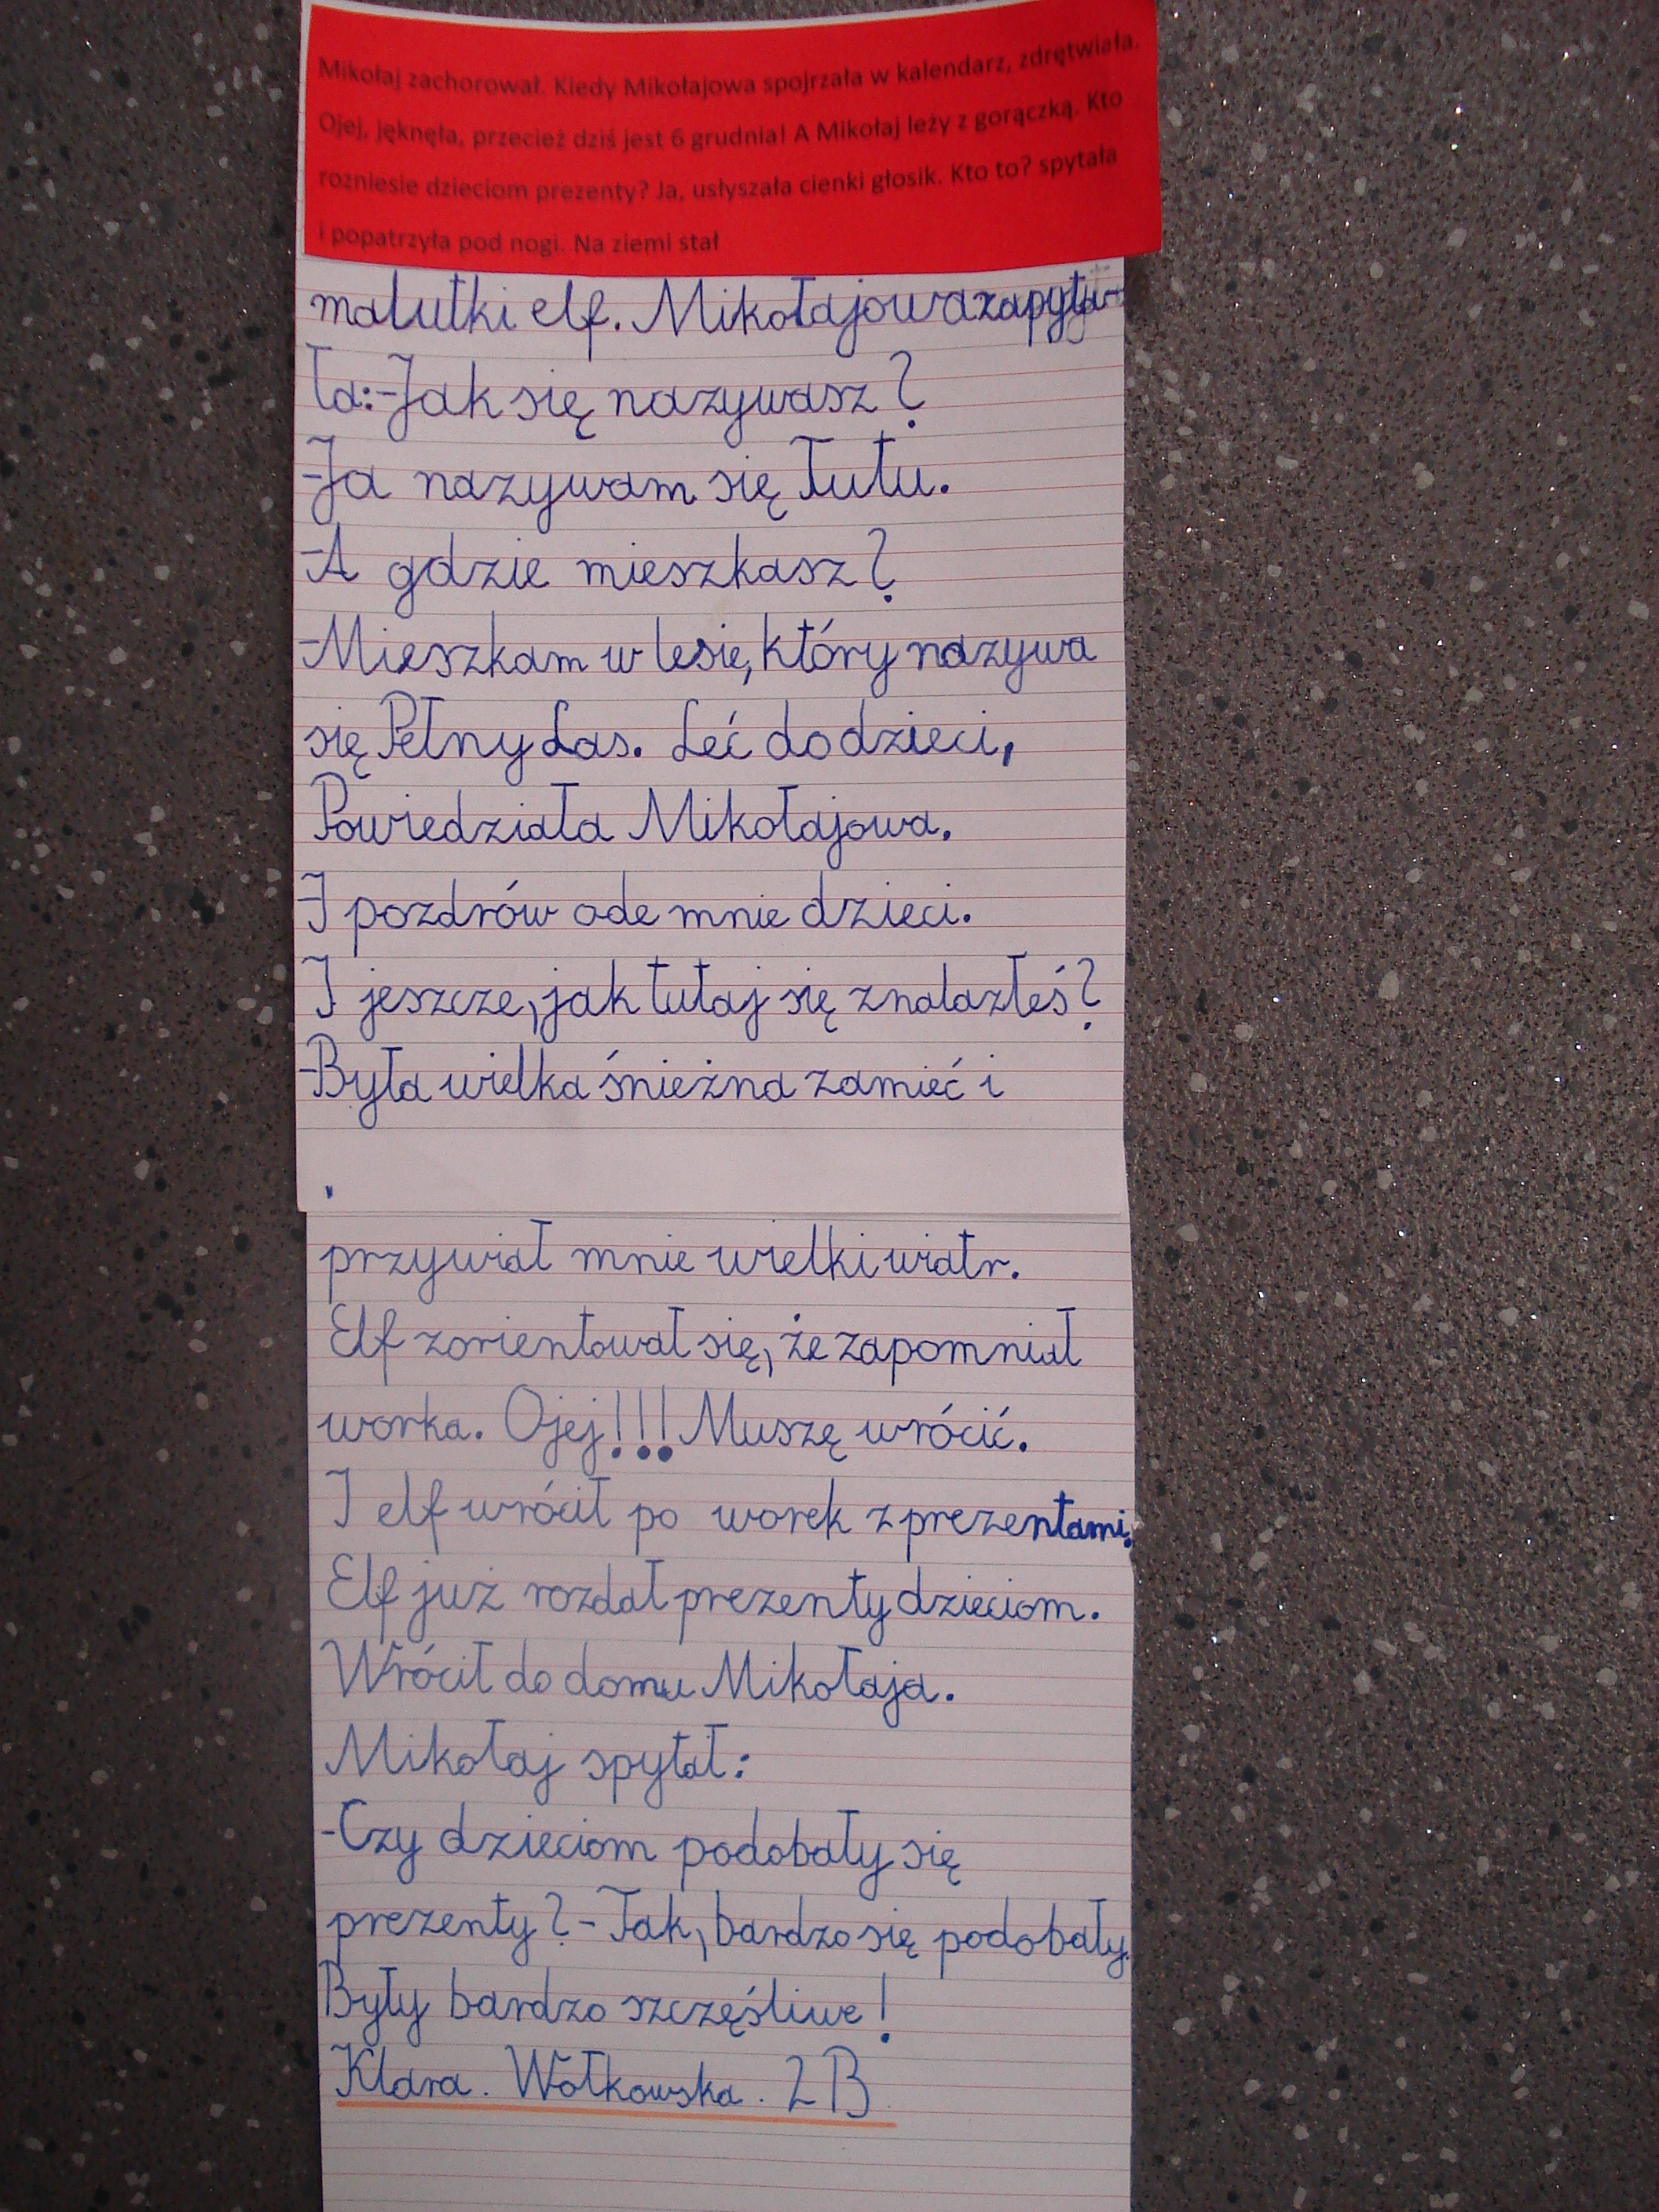 Mikołaj zachorował. Kiedy Mikołajowa spojrzała w kalendarz, zdrętwiała.
Ojej, jęknęła, przecież dziś jest 6 grudnia! A Mikołaj leży z gorączką. Kto
rozniesie dzieciom prezenty? Ja, usłyszała cienki głosik. Kto to? spytała
i popatrzyła pod nogi. Na ziemi stał
malutki elf. Mikołajowa zapyta-
ła:-Jak się nazywasz?
-Ja nazywam się Tutu.
-A gdzie mieszkasz?
-Mieszkam w lesie, który nazywa
się Pełny Las. Leć do dzieci,
Powiedziała Mikołajowa.
I pozdrów ode mnie dzieci.
I jeszcze, jak tutaj się znalazłeś?
-Była wielka śnieżna zamieć i
przywiał mnie wielki wiatr.
Elf zorientował się, że zapomniał
worka. Ojej!!! Muszę wrócić.
I elf wrócił po worek z prezentami.
Elf już rozdał prezenty dzieciom.
Wrócił do domu Mikołaja.
Mikołaj spytał:
-Czy dzieciom podobały się
prezenty? - Tak, bardzo się podobały.
Były bardzo szczęśliwe!
Klara. Wołkowska. 2B